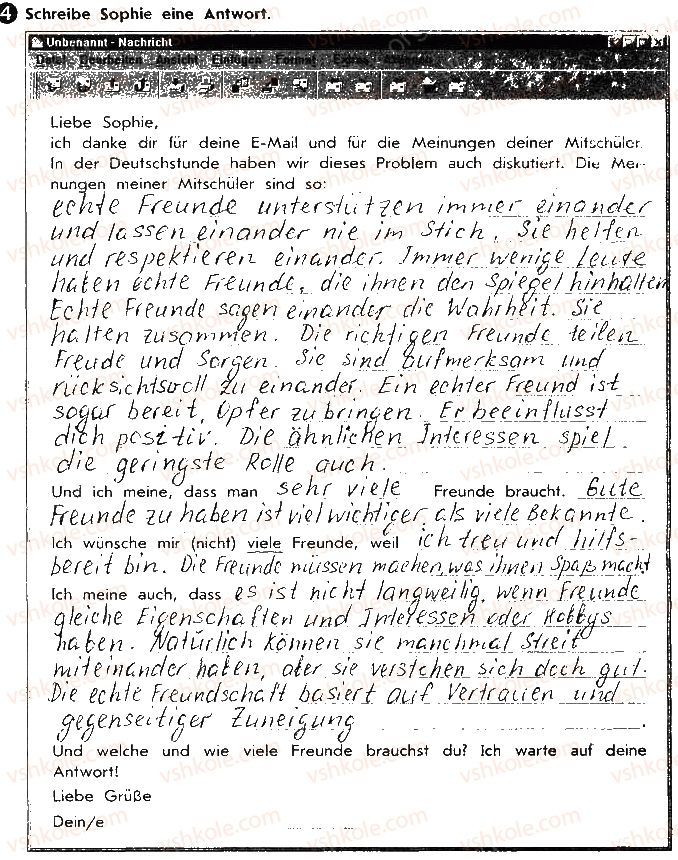 4 Schreibe Sophie eine Antwort.
Unbenannt - Nachricht
Datei Bearbeiten Ansicht Einfügen Format Extras
Liebe Sophie,
ich danke dir für deine E-Mail und für die Meinungen deiner Mitschüler.
In der Deutschstunde haben wir dieses Problem auch diskutiert. Die Mei-
nungen meiner Mitschüler sind so:
echte Freunde unterstützen immer einander
und lassen einander nie im Stich. Sie helfen
und respektieren einander. Immer wenige Leute
haben echte Freunde, die ihnen den Spiegel hinhalten
Echte Freunde sagen einander die Wahrheit. Sie
halten zusammen. Die richtigen Freunde teilen
Freude und Sorgen. Sie sind aufmerksam und
rücksichtsvoll zu einander. Ein echter Freund ist
sogar bereit, Opfer zu bringen. Er beeinflusst
dich positiv. Die ähnlichen Interessen spiel
die geringste Rolle auch.
Und ich meine, dass man sehr viele Freunde braucht. Gute
Freunde zu haben ist viel wichtiger als viele Bekannte.
Ich wünsche mir (nicht) viele Freunde, weil ich treu und hilfs-
bereit bin. Die Freunde müssen machen, was ihnen Spaß macht
Ich meine auch, dass es ist nicht langweilig, wenn Freunde
gleiche Eigenschaften und Interessen oder Hobbys
haben. Natürlich können sie manchmal Streit
miteinander haben, aber sie verstehen sich doch gut.
Die echte Freundschaft basiert auf Vertrauen und
gegenseitiger Zuneigung.
Und welche und wie viele Freunde brauchst du? Ich warte auf deine
Antwort!
Liebe Grüße
Dein/e
vshkole.com